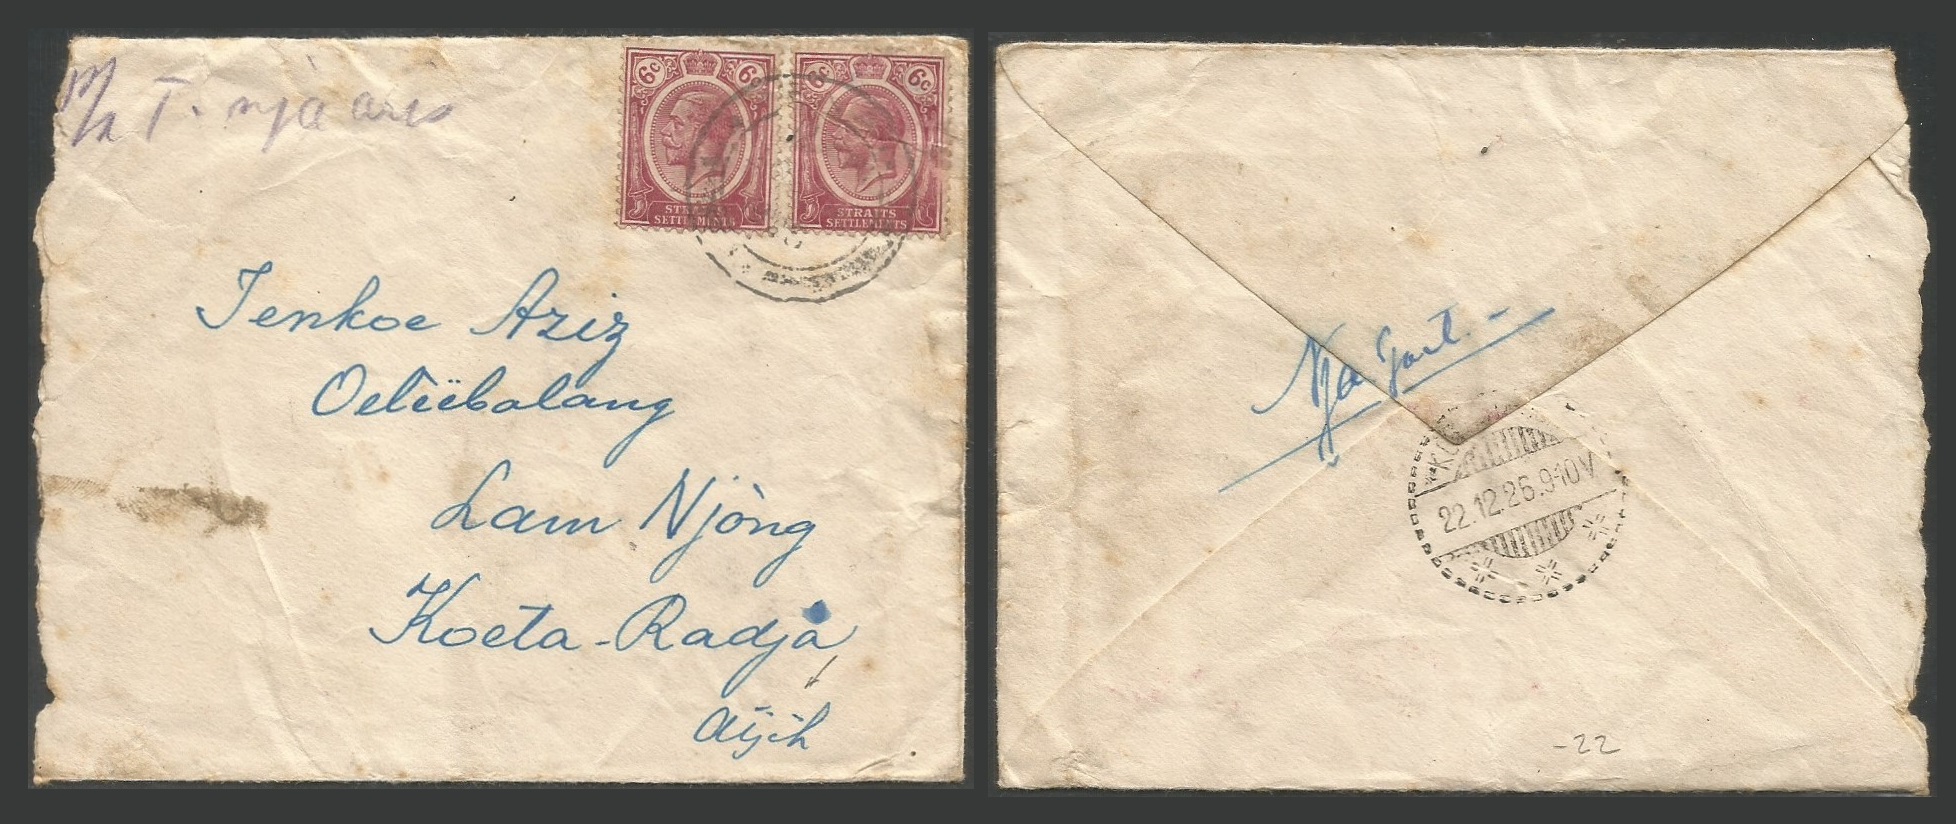 6c 6c
6c 6c
STRAITS
SETTLEMENTS
STRAITS
SETTLEMENTS
Tenkoe Aziz
Oeléëbalang
Lam Njòng
Koeta-Radja
Atjih
Nja
22.12.26.9-10V
-22